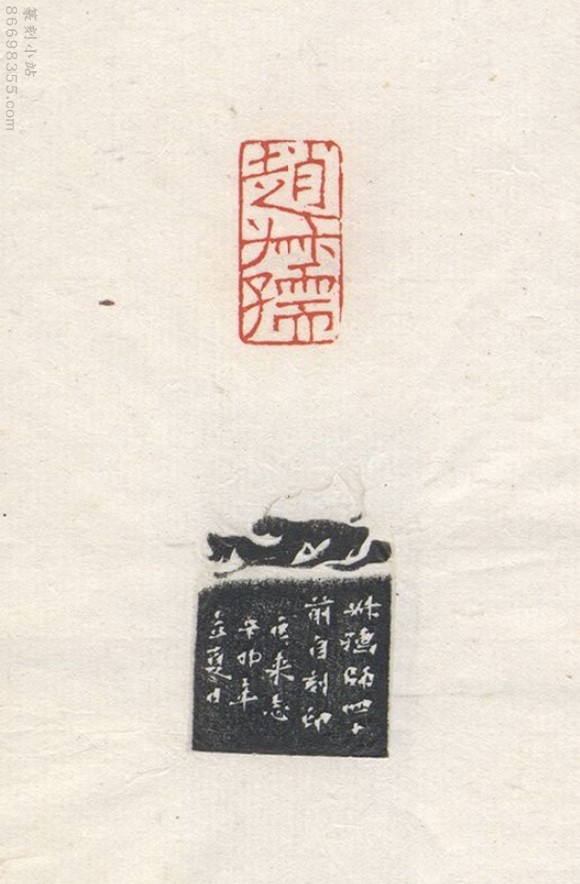 篆刻小站
86698355.com
趙叔孺
叔孺師四十
前自刻印
来志
辛卯年
立夏日